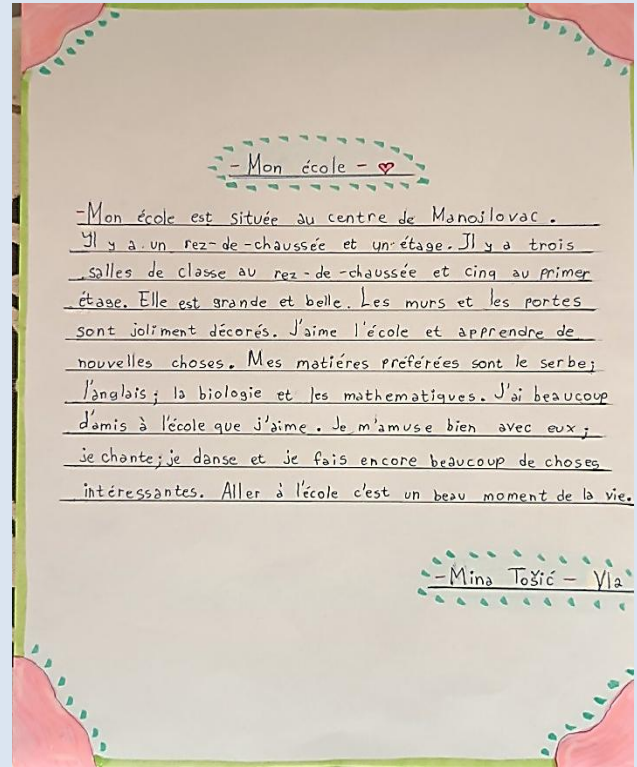 - Mon école -
-Mon école est située au centre de Manojlovac.
Il y a un rez-de-chaussée et un étage. Il y a trois
salles de classe au rez-de-chaussée et cinq au primer
étage. Elle est grande et belle. Les murs et les portes
sont joliment décorés. J'aime l'école et apprendre de
nouvelles choses. Mes matiéres préférées sont le serbe;
l'anglais; la biologie et les mathematiques. J'ai beaucoup
d'amis à l'école que j'aime. Je m'amuse bien avec eux;
je chante; je danse et je fais encore beaucoup de choses
intéressantes. Aller à l'école c'est un beau moment de la vie.
-Mina Tošić - VIa